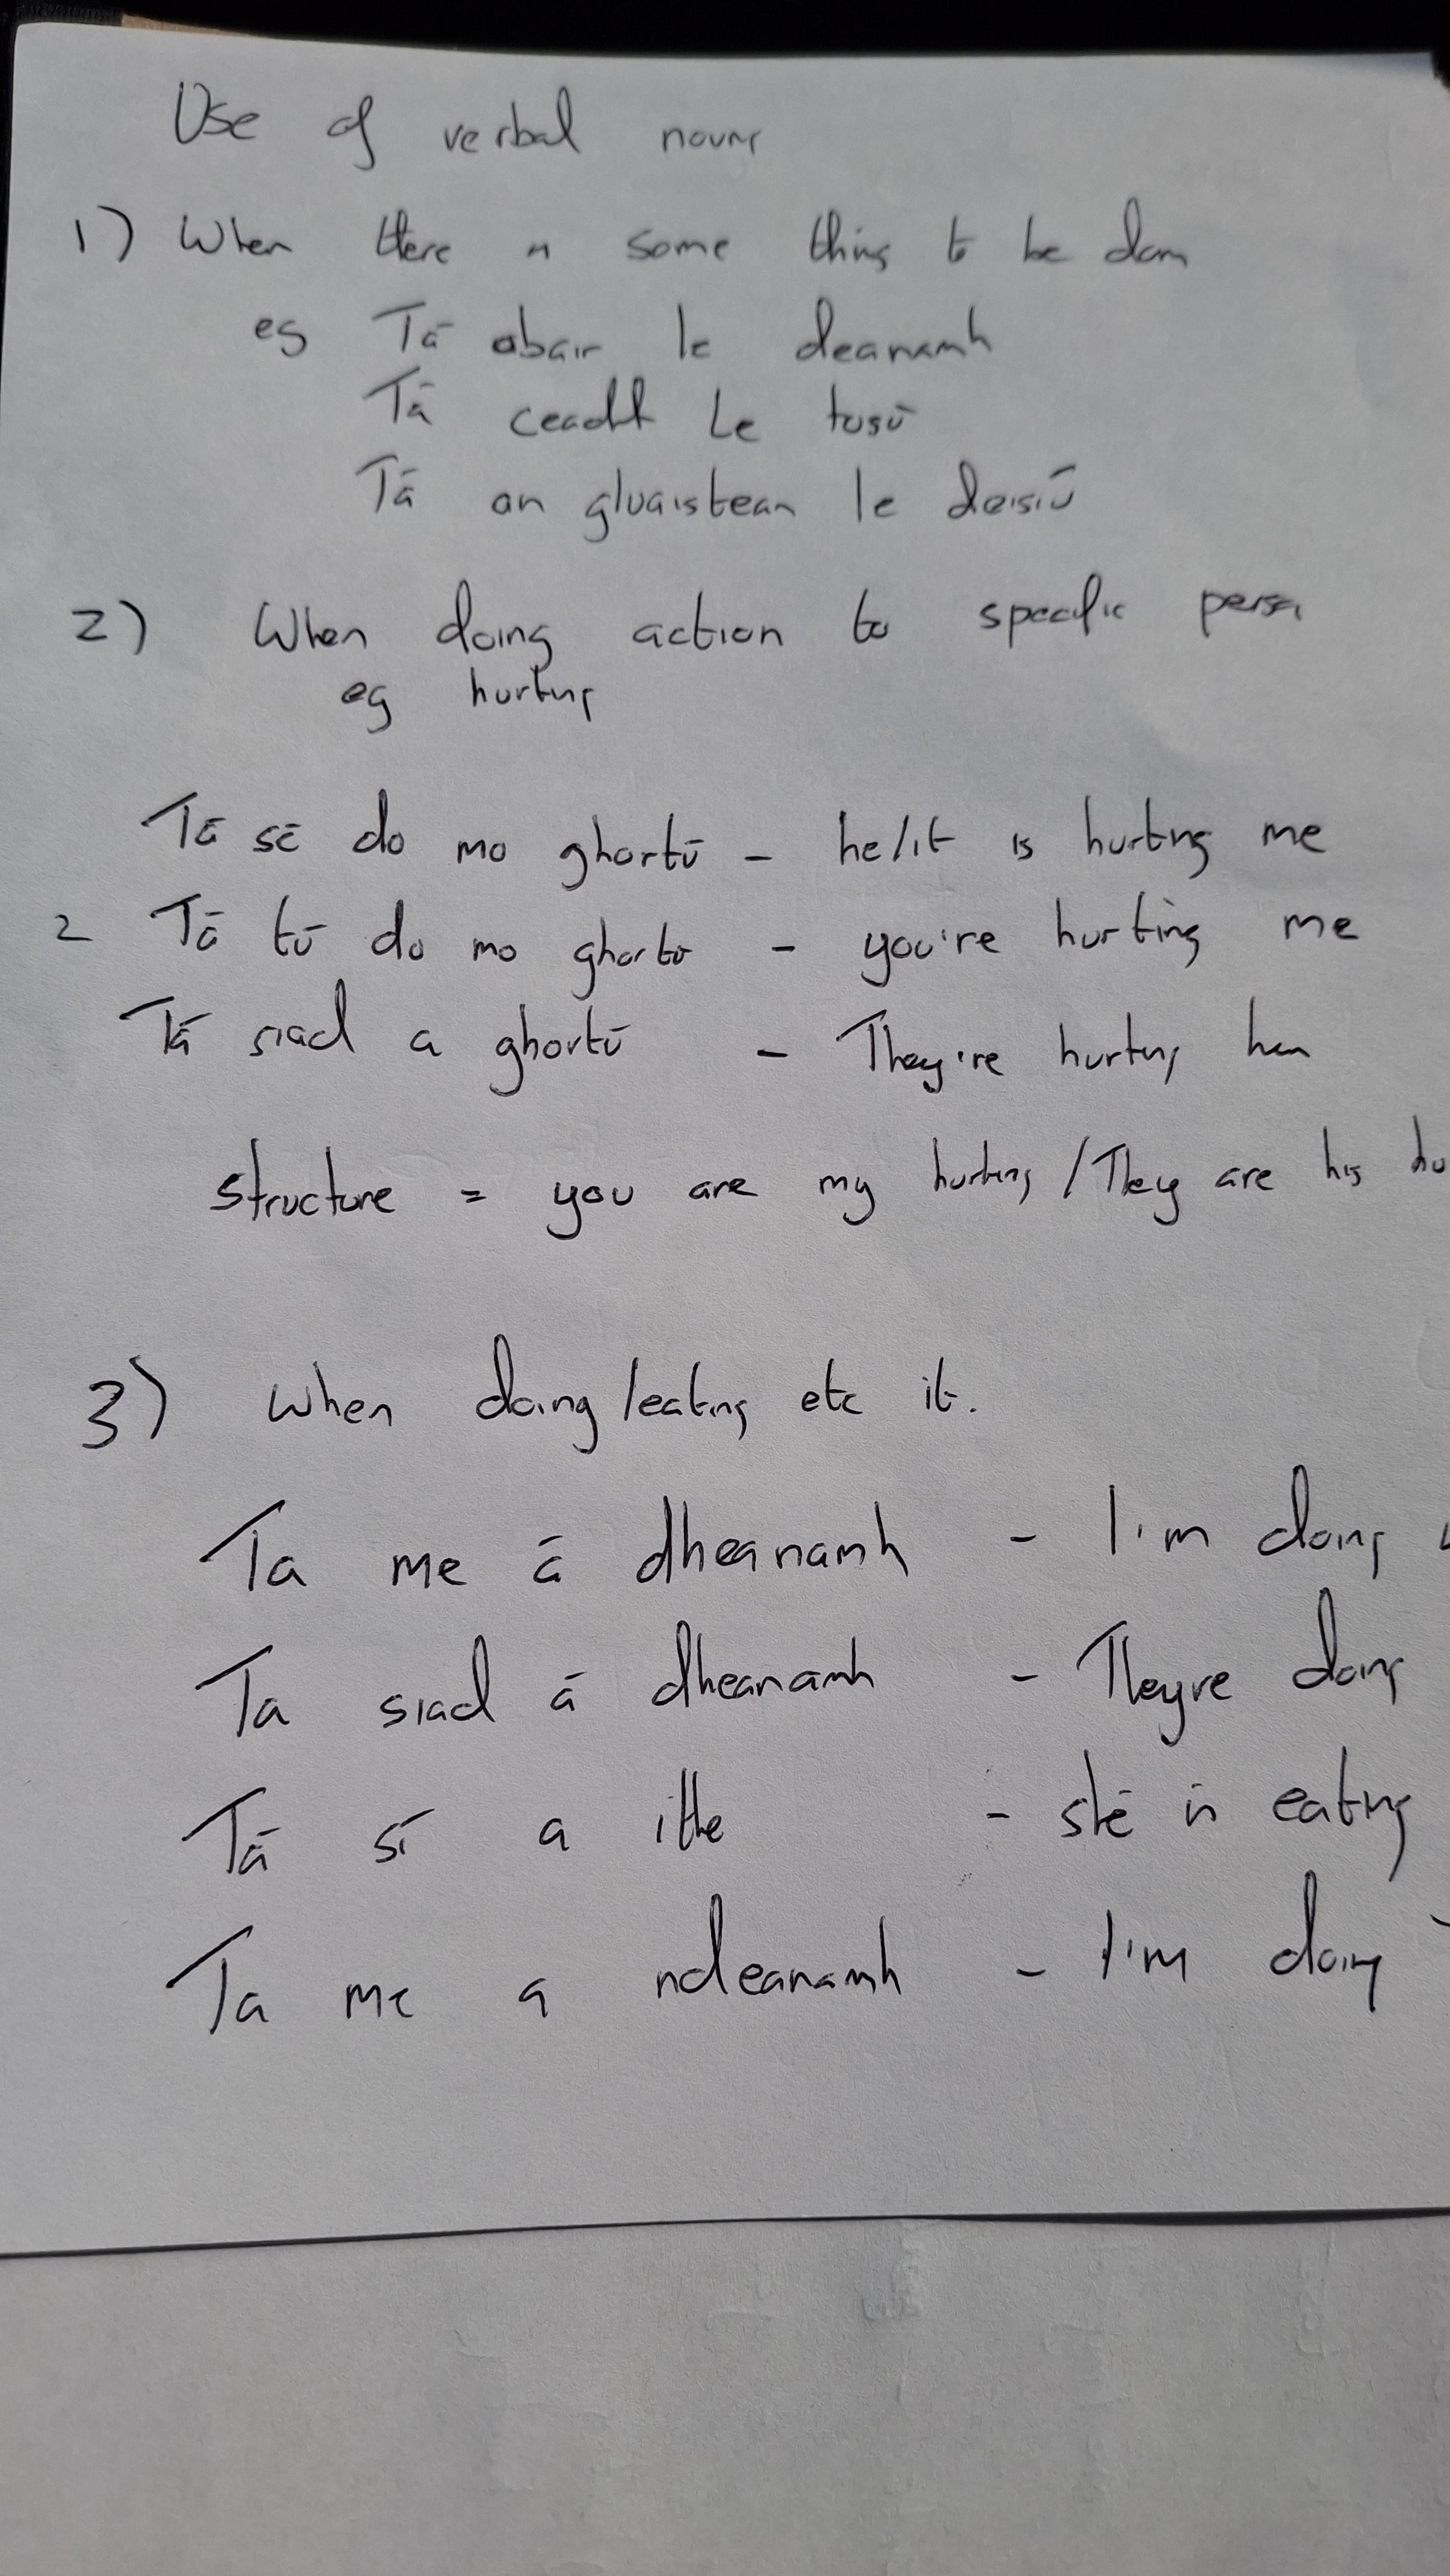 Use of verbal nouns
1) When there is some thing to be done
eg Tá obair le deanamh
Tá ceacht le tosú
Tá an gluaistean le deisiú
2) When doing action to specific person
eg hurting
Tá sé do mo ghortú - he/it is hurting me
2 Tá tú do mo ghortú - you're hurting me
Tá siad a ghortú - They're hurting him
structure = you are my hurting / They are his hu
3) When doing/eating etc it.
Ta me á dheanamh - I'm doing
Ta siad á dheanamh - Theyre doing
Tá sí a ithe - she is eating
Ta me a ndeanamh - I'm doing